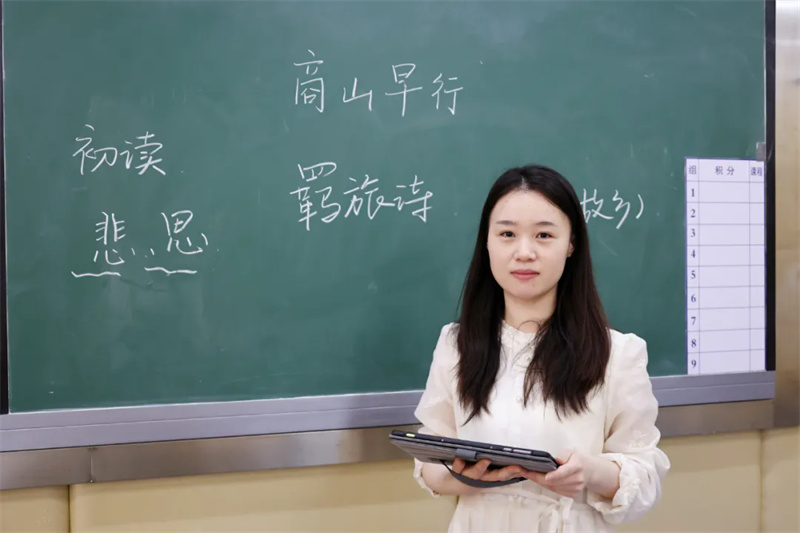 商山早行
初读
羁旅诗
故乡）
悲 思
组 积分 课程
1
2
3
4
5
6
7
8
9